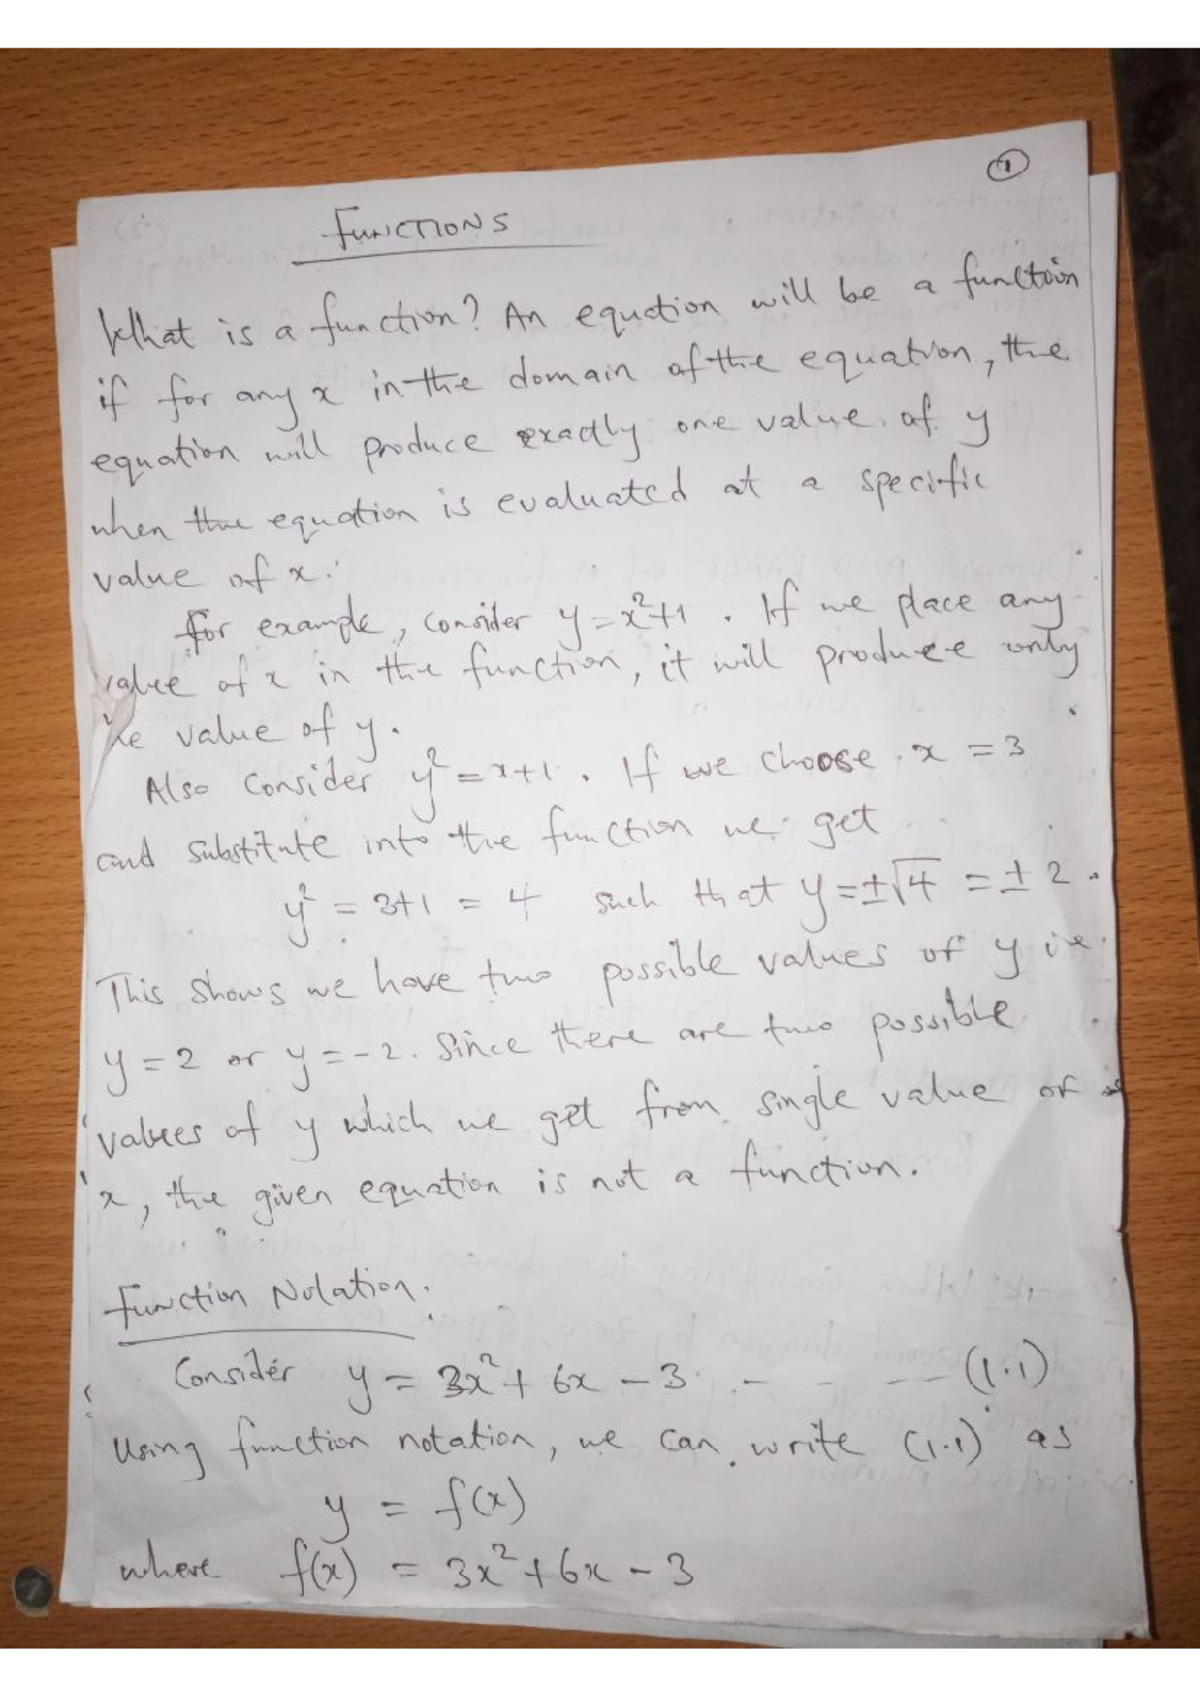 1
FUNCTIONS
What is a function? An equation will be a function
if for any x in the domain of the equation, the
equation will produce exactly one value of y
when the equation is evaluated at a specific
value of x.
For example, consider y = x²+1. If we place any
value of x in the function, it will produce only
value of y.
Also consider y² = x+1. If we choose x = 3
and substitute into the function we get
y² = 3+1 = 4 such that y = ±√4 = ±2.
This shows we have two possible values of y i.e.
y = 2 or y = -2. Since there are two possible
values of y which we get from single value of
x, the given equation is not a function.
Function Notation.
Consider y = 3x² + 6x - 3 - - - -- (1.1)
Using function notation, we can write (1.1) as
y = f(x)
where f(x) = 3x² + 6x - 3